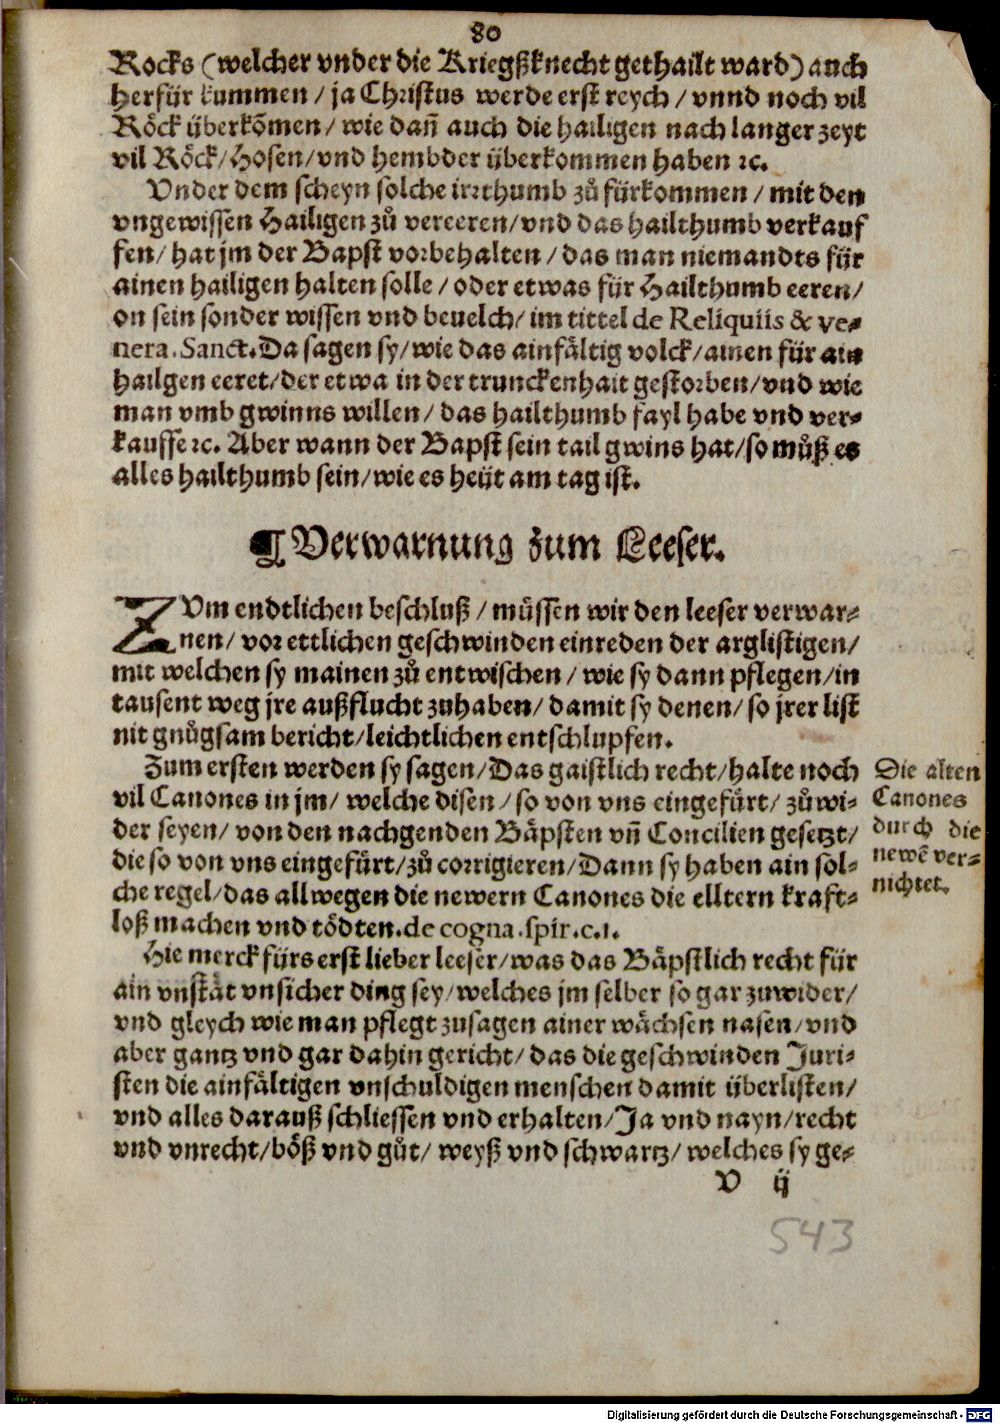 80
Rocks (welcher vnder die Kriegßknecht gethailt ward) auch
herfür kummen / ja Christus werde erst reych / vnnd noch vil
Röck überkom̃en / wie dañ auch die hailigen nach langer zeyt
vil Röck / Hosen / vnd hembder überkommen haben ꝛc.
Vnder dem scheyn solche irrthumb zů fürkommen / mit den
vngewissen Hailigen zů vereeren / vnd das hailthumb verkauf
fen / hat jm der Bapst vorbehalten / das man niemandts für
ainen hailigen halten solle / oder etwas für Hailthumb eeren /
on sein sonder wissen vnd beuelch / im tittel de Reliquiis & ve-
nera. Sanct. Da sagen sy / wie das ainfältig volck / ainen für ain
hailgen eeret / der etwa in der trunckenhait gestorben / vnd wie
man vmb gwinns willen / das hailthumb fayl habe vnd ver-
kauffe ꝛc. Aber wann der Bapst sein tail gwins hat / so můß es
alles hailthumb sein / wie es heüt am tag ist.
¶ Verwarnung zum Leeser.
ZVm endtlichen beschluß / müssen wir den leeser verwar-
nen / vor ettlichen geschwinden einreden der arglistigen /
mit welchen sy mainen zů entwischen / wie sy dann pflegen / in
tausent weg jre außflucht zuhaben / damit sy denen / so jrer list
nit gnůgsam bericht / leichtlichen entschlupfen.
Zum ersten werden sy sagen / Das gaistlich recht / halte noch
vil Canones in jm / welche disen / so von vns eingefürt / zůwi-
der seyen / von den nachgenden Bäpsten vñ Concilien gesetzt /
die so von vns eingefürt / zů corrigieren / Dann sy haben ain sol-
che regel / das allwegen die newern Canones die elltern kraft-
loß machen vnd tödten. de cogna. spir. c. 1.
Die alten
Canones
durch die
newẽ ver-
nichtet.
Hie merck fürs erst lieber leeser / was das Bäpstlich recht für
ain vnstät vnsicher ding sey / welches jm selber so gar zuwider /
vnd gleych wie man pflegt zusagen ainer wächsen nasen / vnd
aber gantz vnd gar dahin gericht / das die geschwinden Juri-
sten die ainfältigen vnschuldigen menschen damit überlisten /
vnd alles darauß schliessen vnd erhalten / Ja vnd nayn / recht
vnd vnrecht / böß vnd gůt / weyß vnd schwartz / welches sy ge-
V ij
543
Digitalisierung gefördert durch die Deutsche Forschungsgemeinschaft - DFG